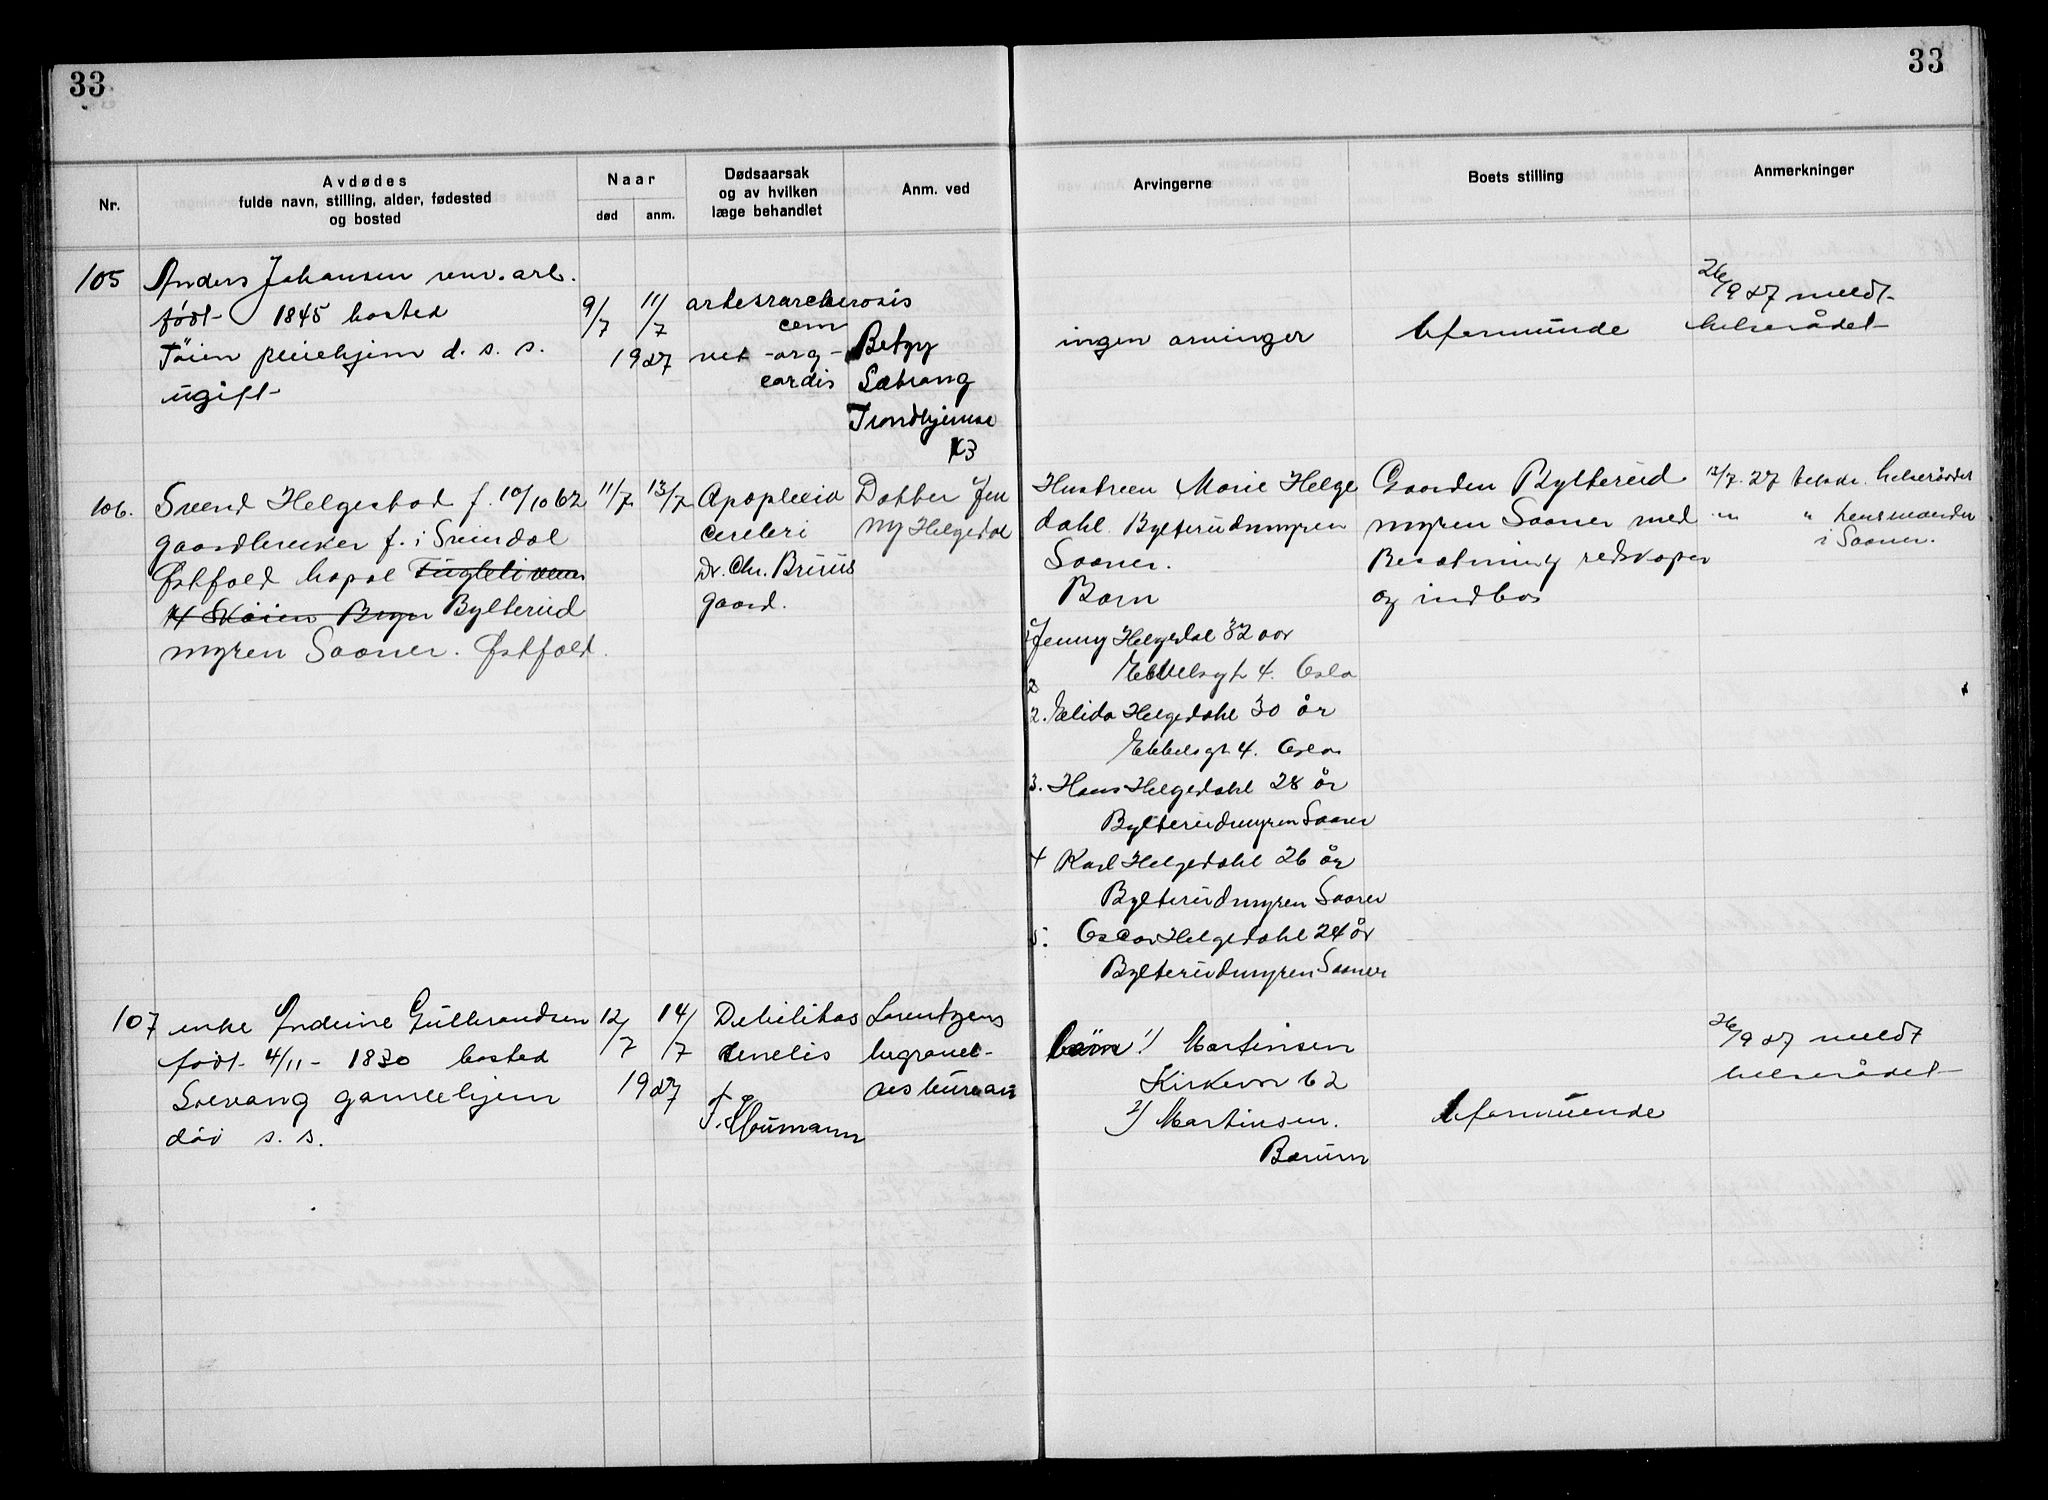 33
33
Nr.
Avdødes
fulde navn, stilling, alder, fødested
og bosted
Naar
død
anm.
Dødsaarsak
og av hvilken
læge behandlet
Anm. ved
Arvingerne
Boets stilling
Anmerkninger
105
Anders Johansen renv. arb.
født 1845 bosted
Töien pleiehjem d. s. s.
ugift
9/7
11/7
1927
cordis
Betzy
Sætrang
Trondhjemsv
ingen arvinger
Uformuende
26/9 27 meldt
helserådet
106.
Svend Helgestad f. 10/10 62
gaardbruker f. i Svindal
Østfold bopæl
Bryn Bylterud
myren Saaner. Østfold.
11/7
13/7
Apoplexia
cerebri
Dr. Chr. Bruus
gaard.
Datter Jen
ny Helgedal
Hustruen Marie Helge
dahl Bylterudmyren
Saaner.
Barn
1
Jenny Helgedal 32 aar
Ebbelsgt 4. Oslo
2
2. Elida Helgedahl 30 år
Ebbelsgt 4. Oslo
3. Hans Helgedahl 28 år
Bylterudmyren Saaner
4 Karl Helgedahl 26 år
Bylterudmyren Saaner
5. Oscar Helgedahl 24 år
Bylterudmyren Saaner
Gaarden Bylterud
myren Saaner med
Besætning redskaper
og indbo
13/7. 27 helserådet
" " lensmanden
i Saaner.
107
enke Andrine Gulbrandsen
født 4/11 - 1830 bosted
Solvang gamlehjem
död s. s.
12/7
14/7
1927
Debilitas
senelis
Lorentzens
begravel-
ses bureau
börn 1/ Martinsen
Kirkevn 62
2/ Martinsen.
Bærum
Uformuende
26/9 27 meldt
helserådet